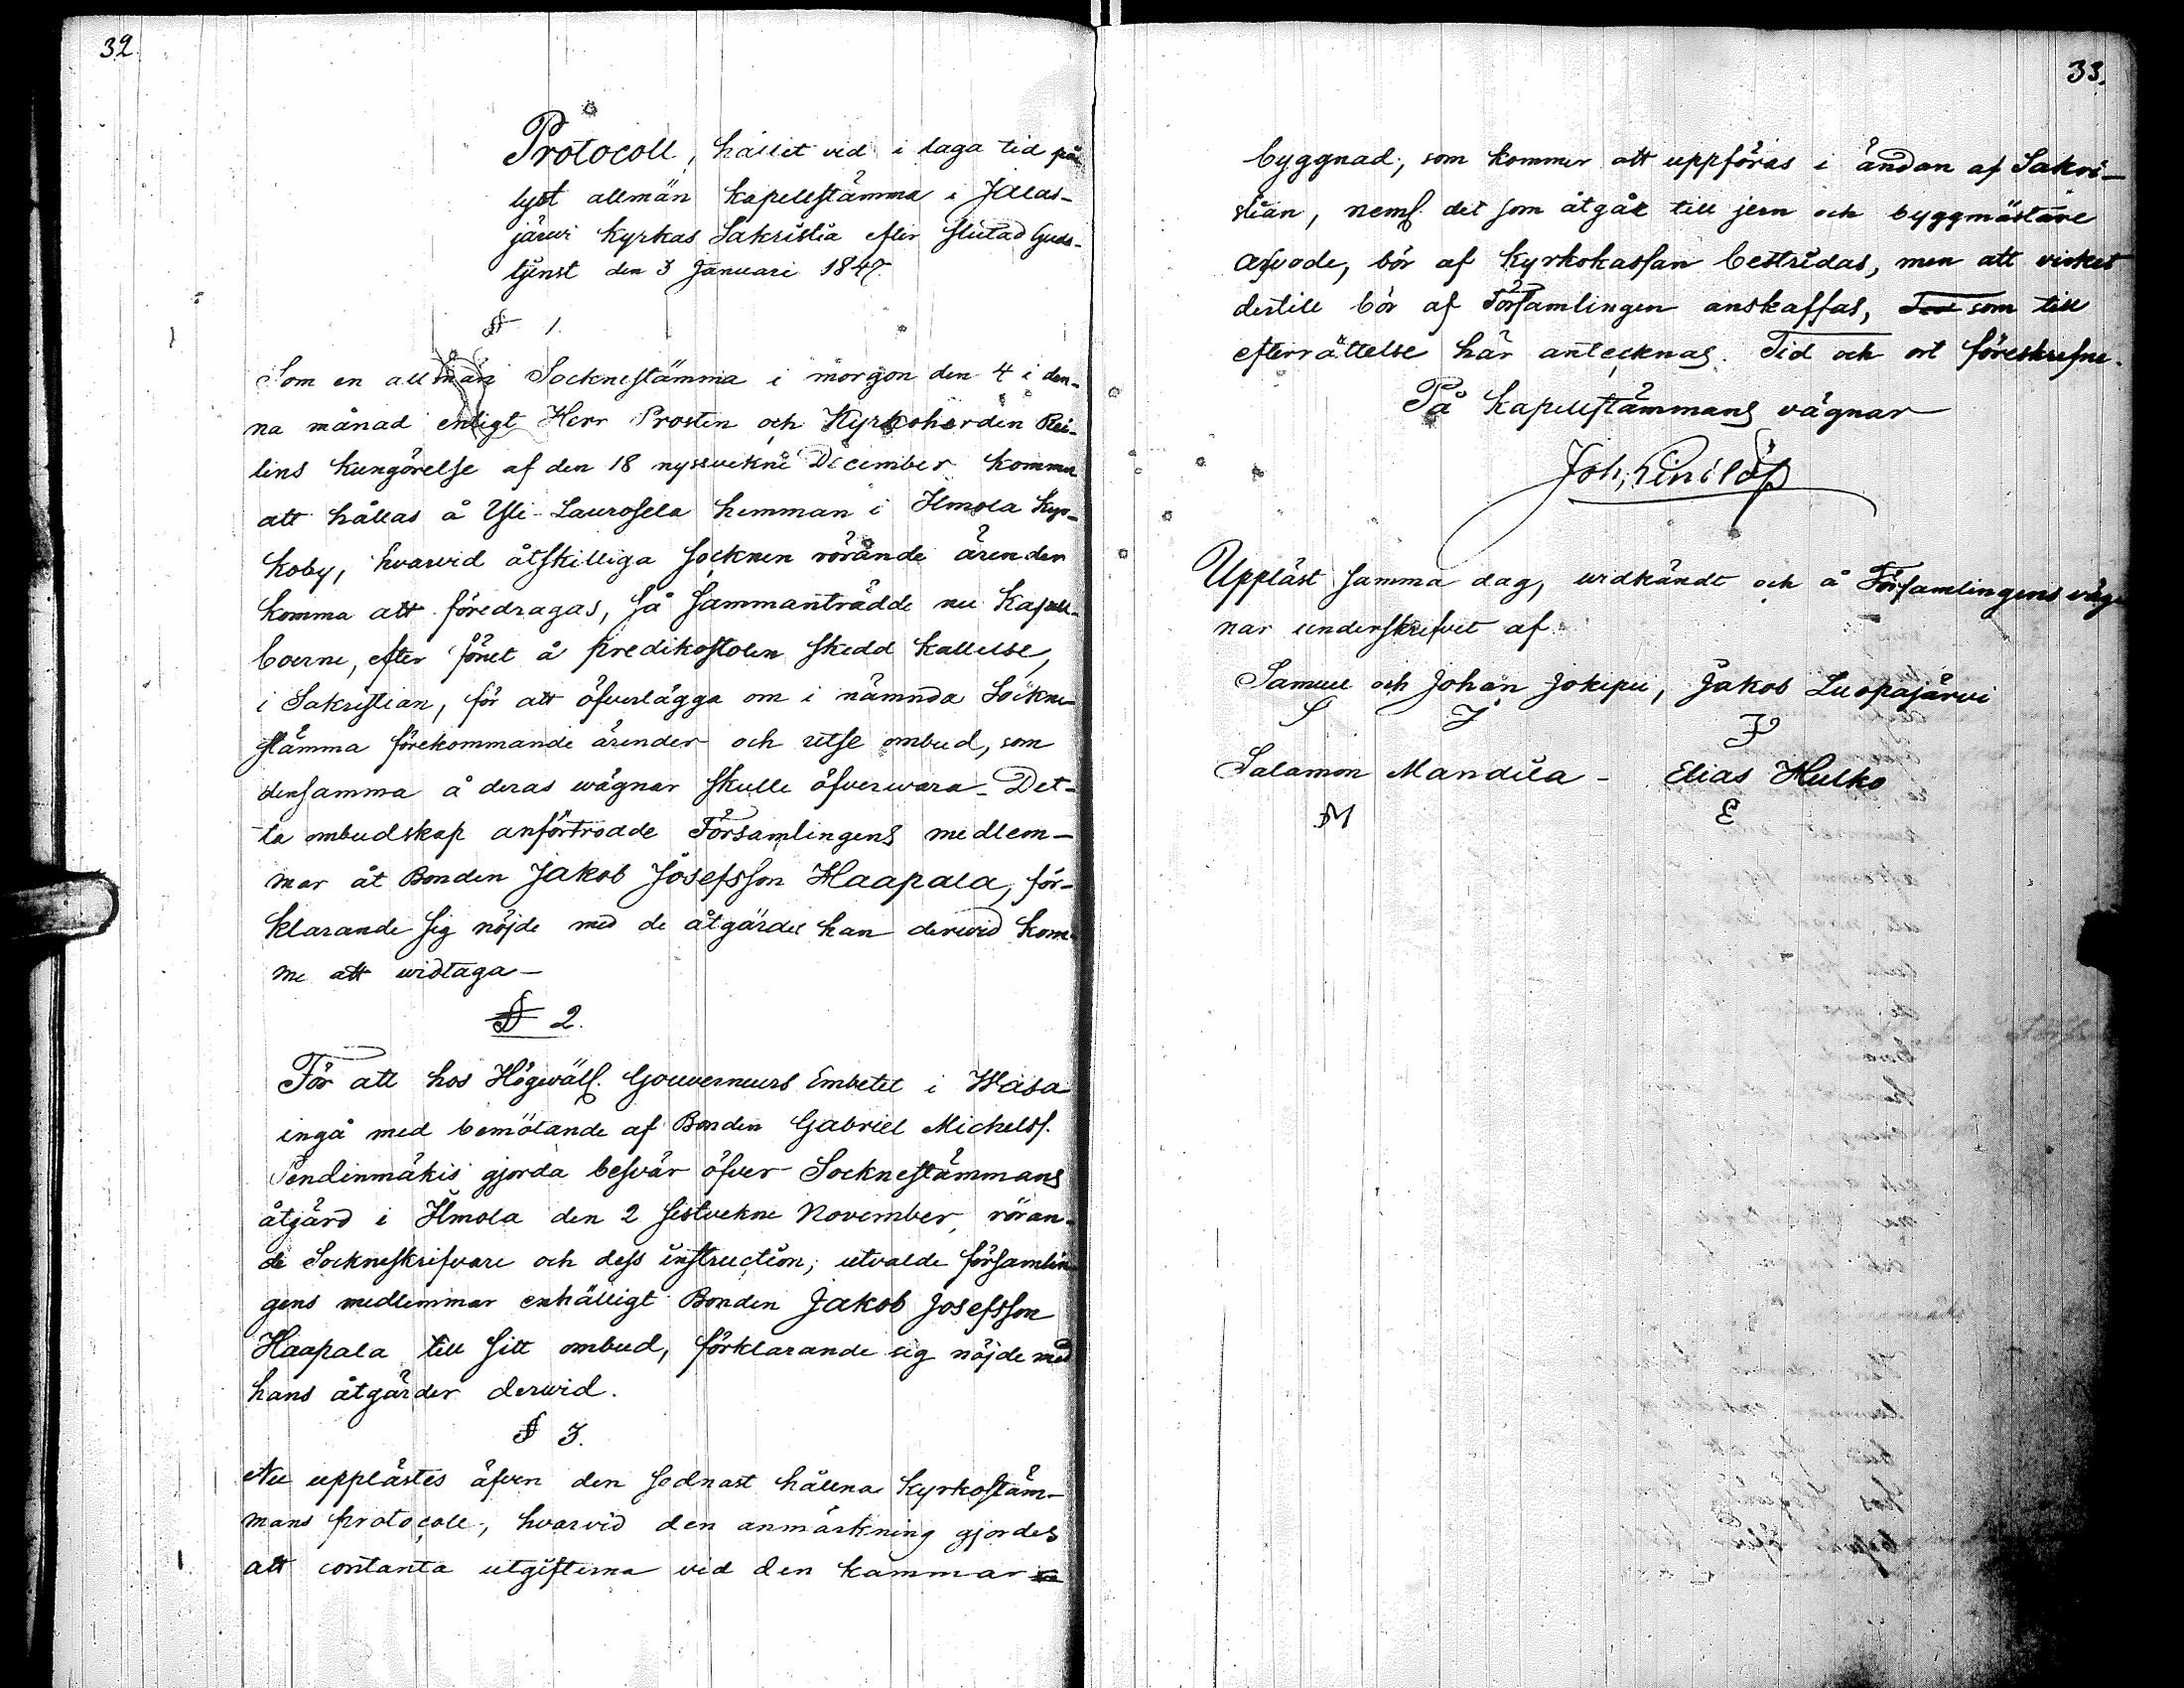 32.
Protocoll, hållet vid i laga tid på-
lyst allmän Kapellstämma i Jalas-
järwi Kyrkas Sakristia efter slutad Guds-
tjenst den 3 Januari 1847.
§ 1.
Som en allmän Socknestämma i morgon den 4 i den-
na månad enligt Herr Prosten och Kyrkoherden Rei-
lins kungörelse af den 18 nyssvekne December komme
att hållas å Yli-Laurosela hemman i Ilmola Kyr-
koby, hvarvid åtskilliga socknen rörande ärender
komma att föredragas, så sammanträdde nu Kapell-
boerne, efter förut å predikostolen skedd kallelse,
i Sakristian, för att öfverlägga om i nämnda Sockne-
stämma förekommande ärender och utse ombud, som
densamma å deras wägnar skulle öfverwara - Det-
ta ombudskap anförtrodde Församlingens medlem-
mar åt Bonden Jakob Josefsson Haapala, för-
klarande sig nöjde med de åtgärder han derwid kom-
me att widtaga -
§ 2.
För att hos Högwälf. Gouverneurs Embetet i Wasa
ingå med bemötande af Bonden Gabriel Michelsf.
Pendinmäkis gjorda besvär öfver Socknestämmans
åtgärd i Ilmola den 2 sistvekne November, röran-
de Sockneskrifvare och dess instruction, utvalde församlin-
gens medlemmar enhälligt Bonden Jakob Josefsson
Haapala till sitt ombud, förklarande sig nöjde med
hans åtgärder derwid.
§ 3.
Nu upplästes äfven den sednast hållna Kyrkostäm-
mans protocoll, hvarvid den anmärkning gjordes
att contanta utgifterna vid den kammar
33.
byggnad, som kommer att uppföras i ändan af Sakri-
stian, neml. det som åtgår till jern och byggmästare
arfvode, bör af Kyrkokassan bestridas, men att virket
dertill bör af Församlingen anskaffas, som till
efterrättelse här antecknas. Tid och ort föreskrefne.
På Kapellstämmans vägnar
Joh.
Uppläst samma dag, widkändt och å Församlingens väg-
nar underskrifvet af
Samuel och Johan Jokipii, Jakob Luopajärwi
S J J
Salamon Mandila - Elias Hulko
M E